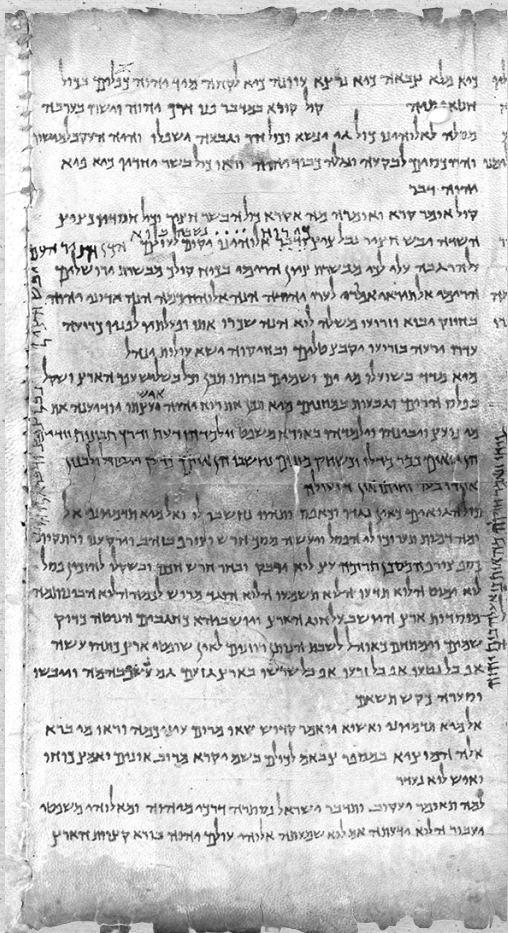 כיא מלא צבאה כיא נרצא עוונה כיא לקחה מיד יהוה כפלים בכול
חטאותיהא קול קורא במדבר פנו דרך יהוה וישרו בערבה
מסלה לאלוהינו כול גי ינשא וכול הר וגבעה ישפלו והיה העקב למישור
והרוכסים לבקעה ונגלה כבוד יהוה וראו כול בשר יחדיו כיא פיא
יהוה דבר
קול אומר קרא ואומרה מה אקרא כול הבשר חציר וכול חסדיו כציץ
כי רוח .... נשבה בוא
השדה יבש חציר נבל ציץ ודבר אלוהינו יקום לעולם הכן חציר העם
יבש חציר נבל ציץ ודבר אלוהינו
על הר גבה עלי לכי מבשרת ציון הרימי בכוח קולך מבשרת ירושלים
הרימי אל תיראי אמרי לערי יהודה הנה אלוהיכמה הנה אדוני יהוה
בחוזק יבוא וזרועו משלה לוא הנה שכרו אתו ופעלתיו לפניו כרועה
עדרו ירעה בזרועו יקבץ טלים ובחיקוה ישא עולות ינהל
מיא מדד בשועלו מי ים ושמים בזרתו תכן וכל בשליש עפר הארץ ושקל
בפלס הרים וגבעות במוזנים מיא תכן את רוח יהוה ועצתו יודיענה את
מי נועץ ויבינהו וילמדהו באורח משפט וילמדהו דעת ודרך תבונות
הן גואים כמר מדלי וכשחק מוזנים נחשבו הן איים כדק יטול ולבנון
אין די בער וחיתו אין די עולה
כול הגואים כאין נגדו וכאפס ותהוו נחשבו לו ואל מיא תדמיוני אל
ומה דמות תערוכו לי הפסל ויעשה מסך חרש וצורף בזהב וירקענו ורתקות
כסף צורף המסכן תרומה עץ לוא ירקב יבחר חרש חכם ובשקל להכין פסל
לוא ימוט הלוא תדעו הלוא תשמעו הלוא הוגד מרוש לכמה הלוא הבינותמה
מוסדות ארץ היושב על חוג הארץ ויושביהא כחגבים הנוטה כדוק
שמים וימתחם כאוהל לשבת הנותן רוזנים לאין שופטי ארץ כתהו עשה
אף בל נטעו אף בל זרעו אף בל שרשו בארץ גזעם גם נשף בהמה ויבשו
וסערה כקש תשאם
אל מיא תדמיוני ואשוא יואמר קדוש שאו מרום עיניכמה וראו מי ברא
אלה המוציא במספר צבאם לכולם בשם יקרא מרוב אונים ואמץ כוחו
ואיש לוא נעדר
למה תואמר יעקוב ותדבר ישראל נסתרה דרכי מיהוה ומאלוהי משפטי
יעבור הלוא ידעתה אם לוא שמעתה אלוהי עולם יהוה בורא קצוות הארץ